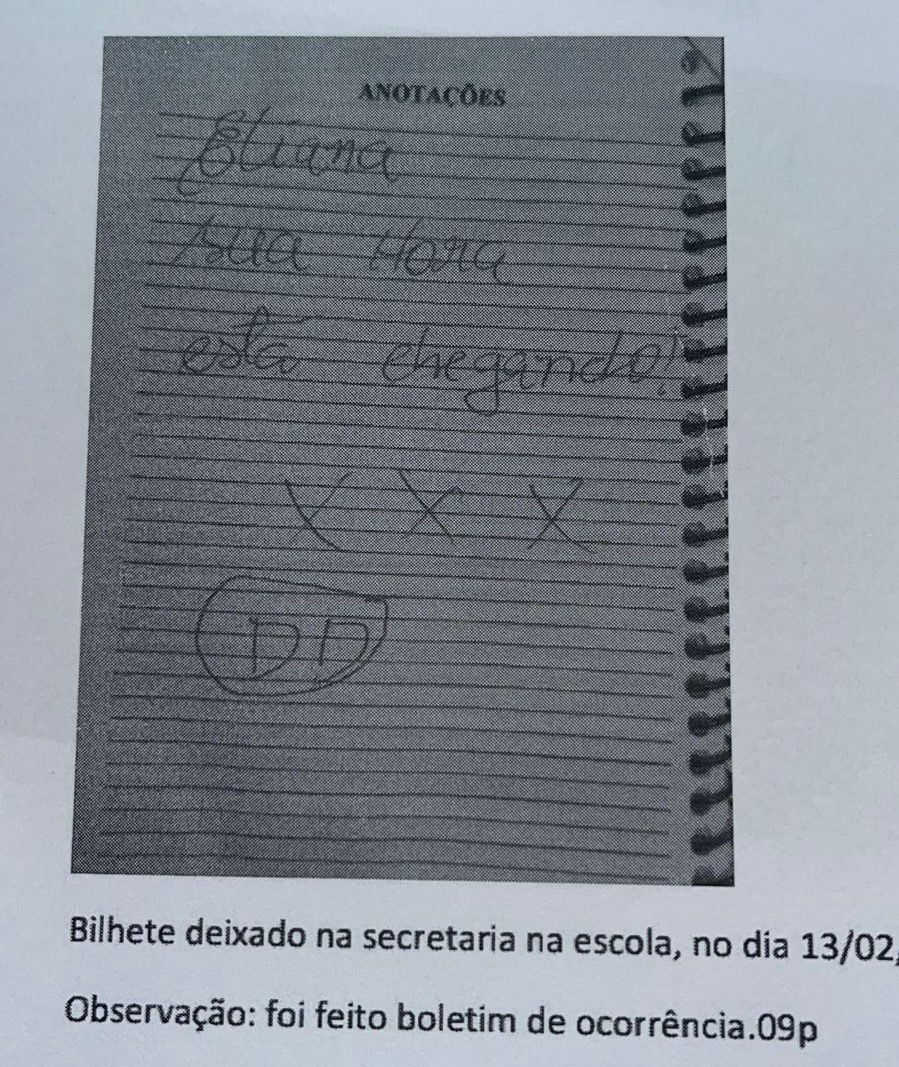 ANOTAÇÕES
Eliana
sua Hora
está chegando!
X X X
DD
Bilhete deixado na secretaria na escola, no dia 13/02,
Observação: foi feito boletim de ocorrência.09p